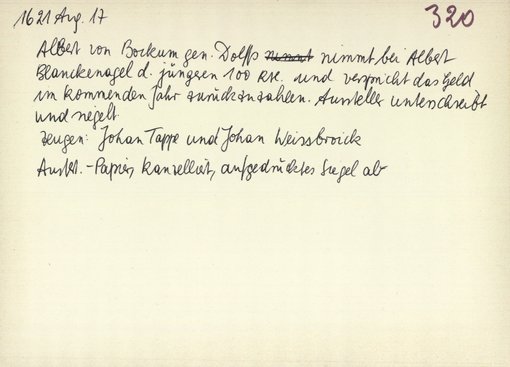 1621 Aug. 17
320
Albert von Bockum gen. Dolffs nimmt nimmt bei Albert
Blanckenagel d. jüngeren 100 Rtl. und verspricht das Geld
im kommenden Jahr zurückzuzahlen. Aussteller unterschreibt
und siegelt
Zeugen: Johan Tappe und Johan Weissbroick
Ausf. - Papier, kanzelliert, aufgedrücktes Siegel ab